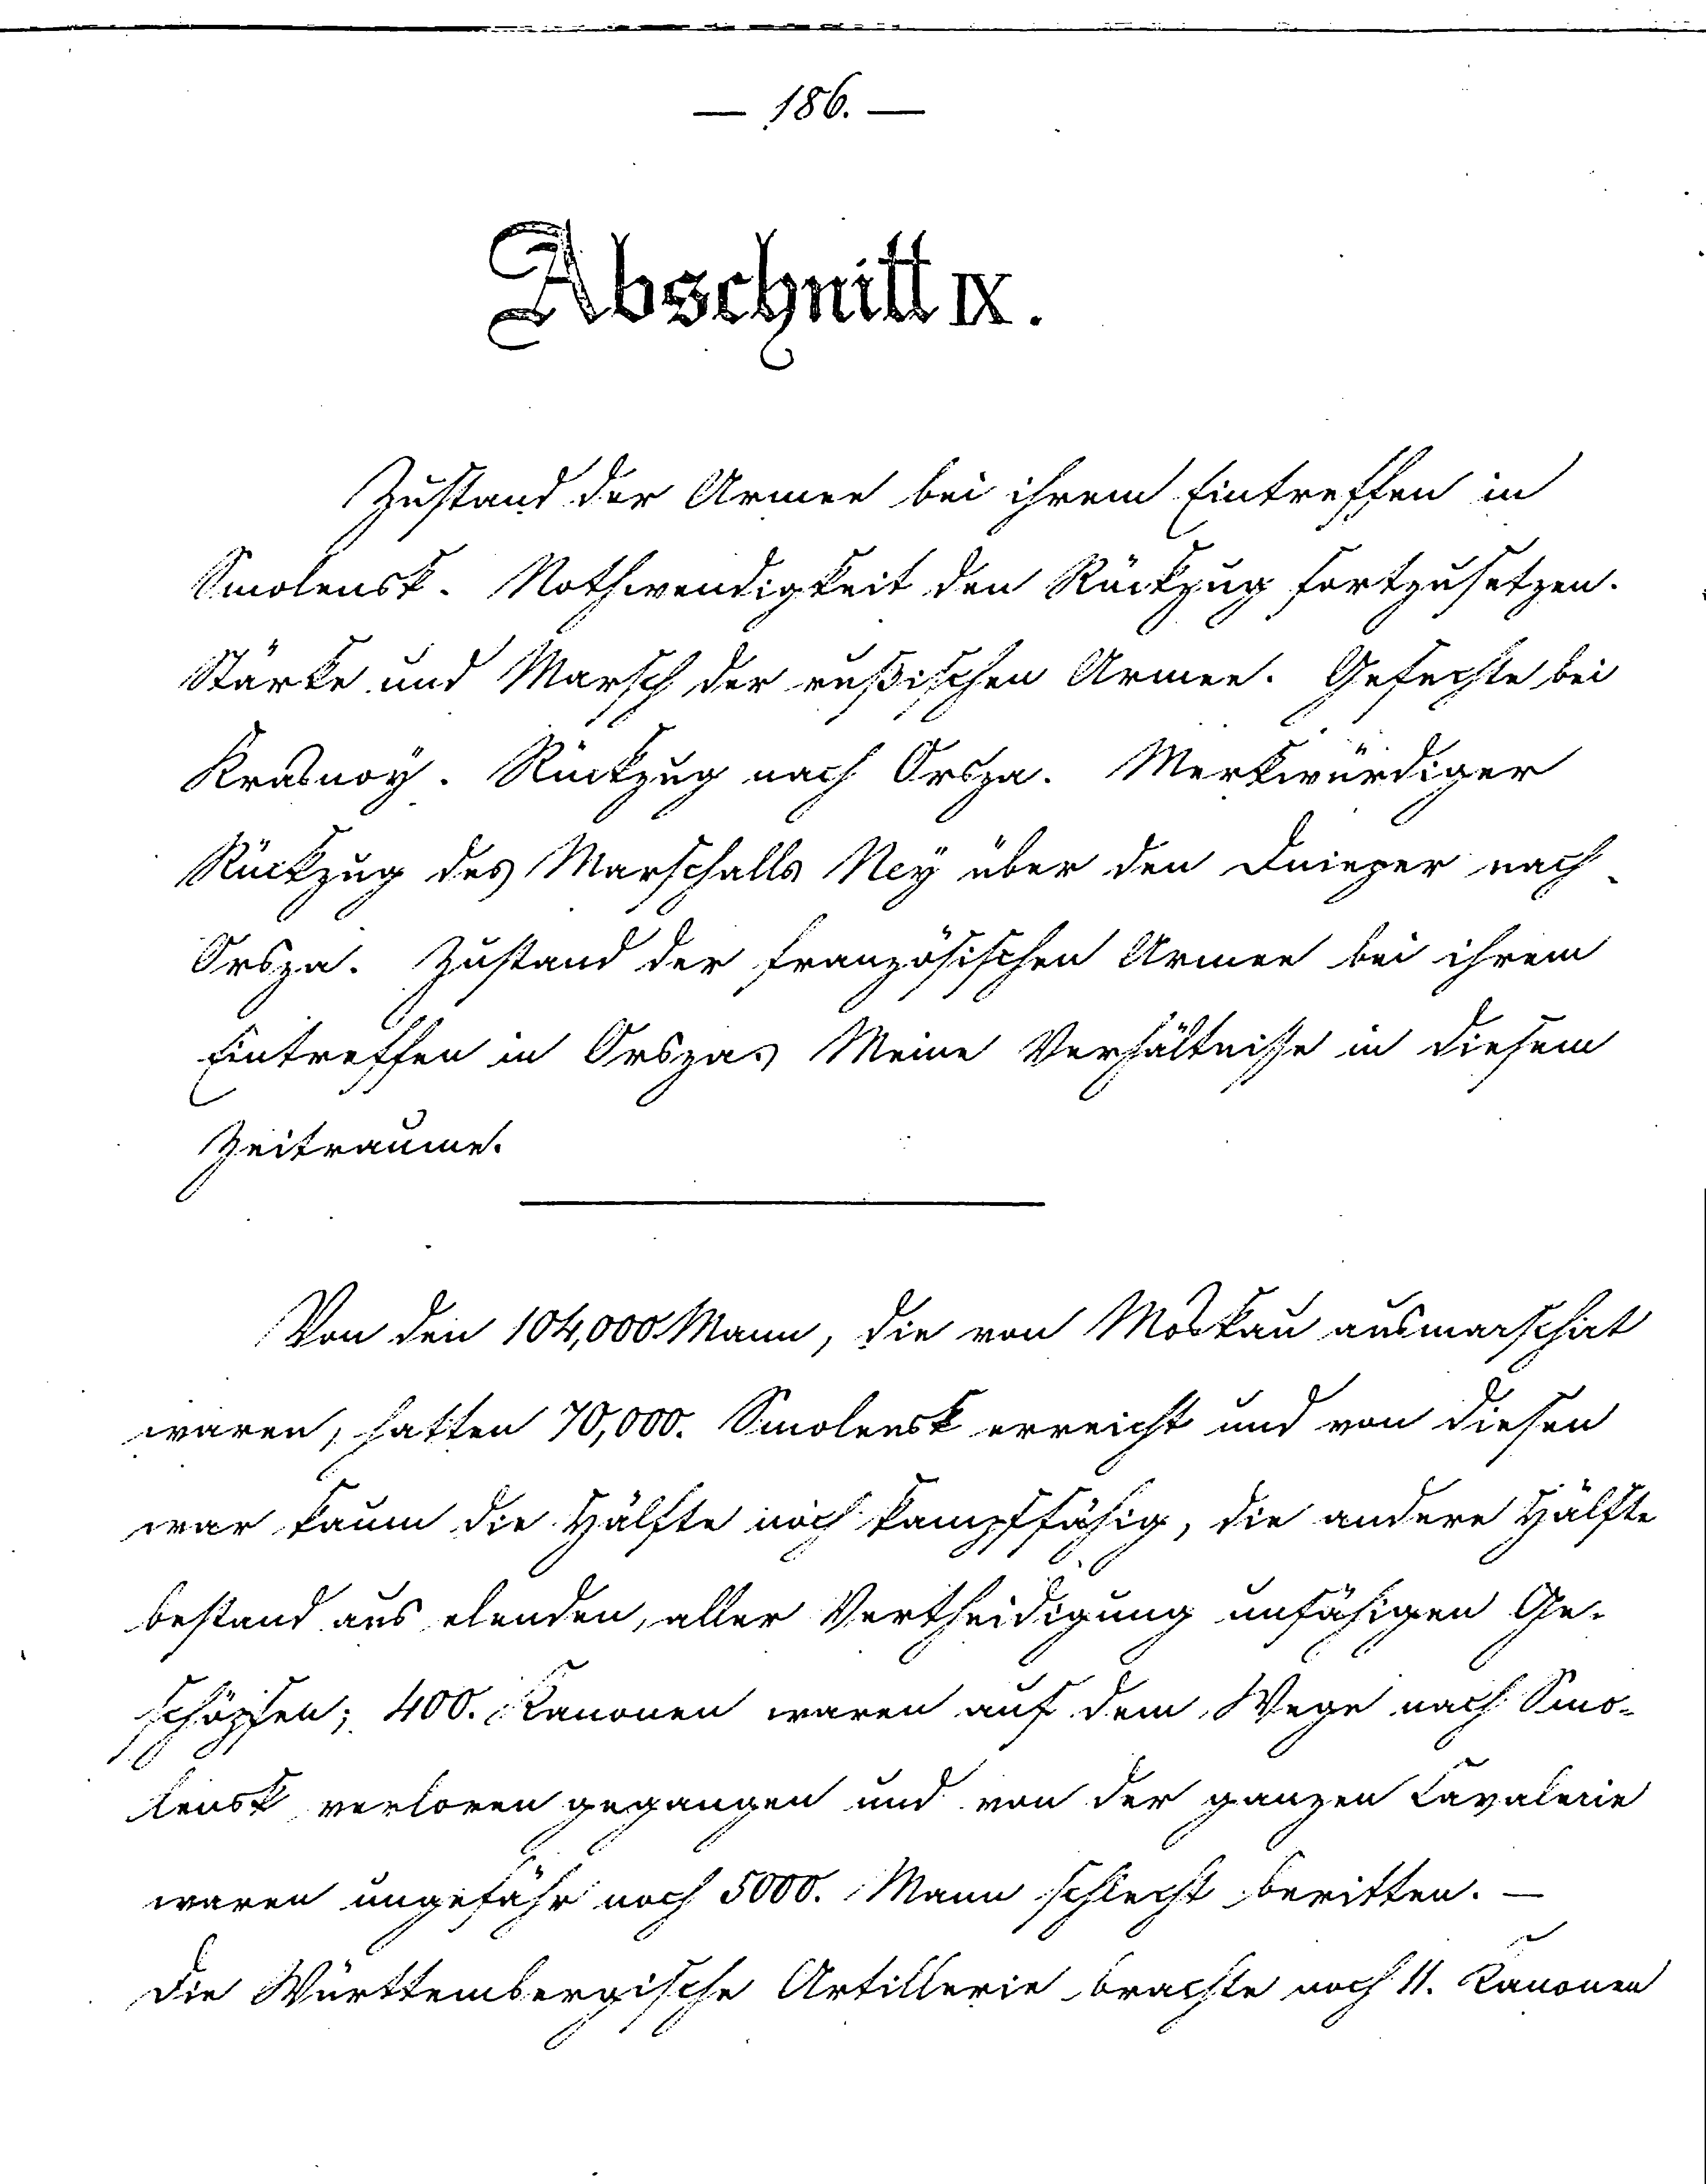 — 186. —
Abschnitt IX.
Zustand der Armee bei ihrem Eintreffen in
Smolensk. Nothwendigkeit den Rückzug fortzusetzen.
Stärke und Marsch der rußischen Armee. Gefechte bei
Krasnoÿ. Rückzug nach Orsza. Merkwürdiger
Rückzug des Marschalls Neÿ über den Dnieper nach
Orsza. Zustand der französischen Armee bei ihrem
Eintreffen in Orsza. Meine Verhältnisse in diesem
Zeitraume.
Von den 104,000 Mann, die von Moskau ausmarschirt
waren, hatten 70,000. Smolensk erreicht und von diesen
war kaum die Hälfte noch kampffähig, die andere Hälfte
bestand aus elenden, aller Vertheidigung unfähigen Ge-
schöpfen; 400. Kanonen waren auf dem Wege nach Smo-
lensk verloren gegangen und von der ganzen Cavalerie
waren ungefähr noch 5000. Mann schlecht beritten. —
Die Württembergische Artillerie brachte noch 11. Kanonen